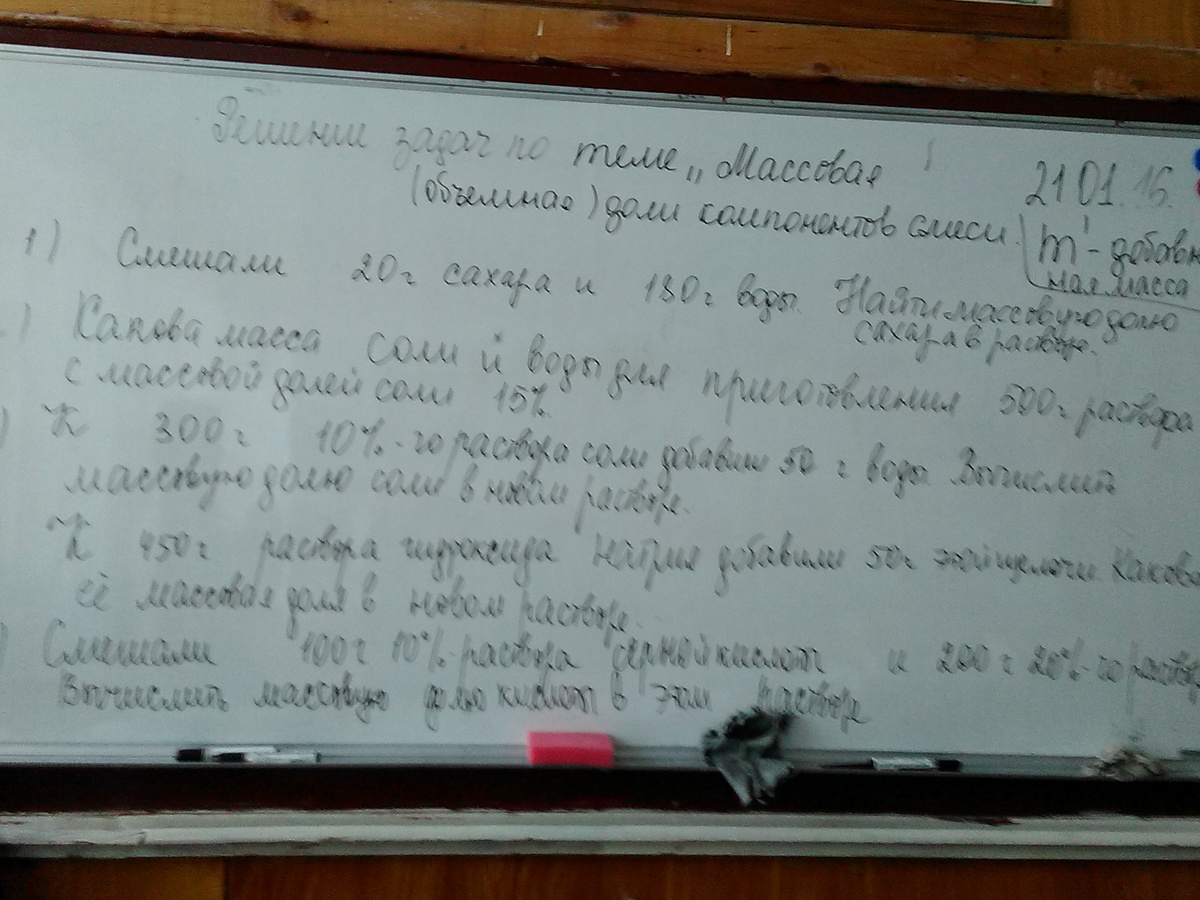 Решение задач по теме „Массовая
21 01. 16.
(объемная) доли компонентов смеси.
m' - добавн
ная масса
1) Смешали 20 г сахара и 180 г воды. Найти массовую долю
сахара в растворе.
) Какова масса соли и воды для приготовления 500 г раствора
с массовой долей соли 15%.
) К 300 г 10%-го раствора соли добавили 50 г воды. Вычислить
массовую долю соли в новом растворе.
К 450 г раствора гидроксида натрия добавили 50 г этой щелочи Какова
её массовая доля в новом растворе.
) Смешали 100 г 10%-раствора серной кислоты и 200 г 20%-го раствор
Вычислить массовую долю кислоты в этом растворе